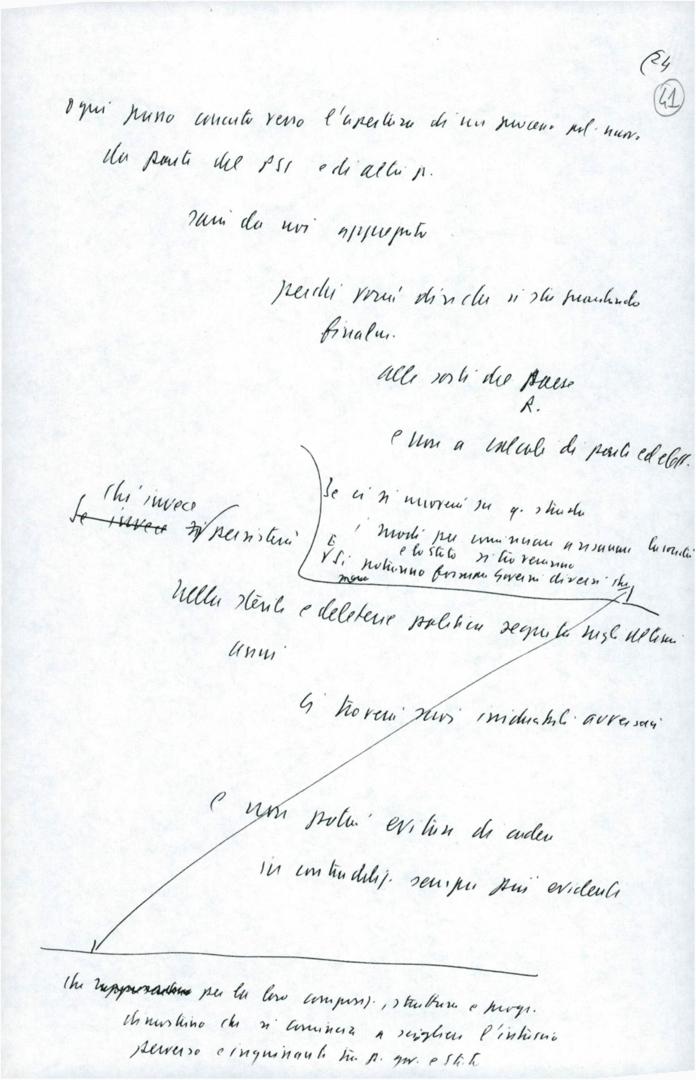 24
41
Ogni passo concreto verso l'apertura di un processo pol. nuovo
da parte del PSI e di altri p.
sarà da noi appoggiato
perché vorrà dire che si sta guardando
finalm.
alle sorti del Paese
R.
e non a calcoli di parte ed elett.
Se ci si muoverà su q. strada
i modi per cominciare a risanare la società
e lo Stato si troveranno
E si potranno formare Governi diversi che
Chi invece
Se invece si persisterà
nella sterile e deleteria politica seguita negli ultimi
anni
ci troverà suoi irriducibili avversari
e non potrà evitare di cadere
in contraddiz. sempre più evidenti
che per la loro composiz., struttura e progr.
dimostrino che si comincia a sciogliere l'intreccio
perverso e inquinante tra p. gov. e Stato